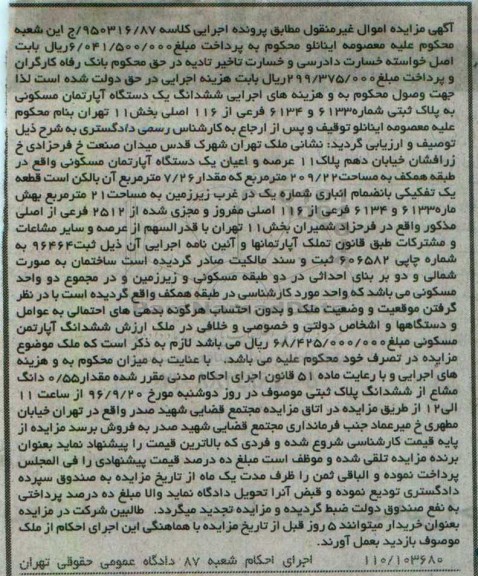 آگهی مزایده اموال غیرمنقول مطابق پرونده اجرایی کلاسه ۹۵۰۳۱۶/۸۷/ج این شعبه
محکوم علیه معصومه اینانلو محکوم به پرداخت مبلغ ۶/۰۴۱/۵۰۰/۰۰۰ ریال بابت
اصل خواسته خسارت دادرسی و خسارت تاخیر تادیه در حق محکوم بانک رفاه کارگران
و پرداخت مبلغ ۲۹۹/۳۷۵/۰۰۰ ریال بابت هزینه اجرایی در حق دولت شده است لذا
جهت وصول محکوم به و هزینه های اجرایی ششدانگ یک دستگاه آپارتمان مسکونی
به پلاک ثبتی شماره ۶۱۳۳ و ۶۱۳۴ فرعی از ۱۱۶ اصلی بخش ۱۱ تهران بنام محکوم
علیه معصومه اینانلو توقیف و پس از ارجاع به کارشناس رسمی دادگستری به شرح ذیل
توصیف و ارزیابی گردید: نشانی ملک تهران شهرک قدس میدان صنعت خ فرحزادی خ
زرافشان خیابان دهم پلاک ۱۱ عرصه و اعیان یک دستگاه آپارتمان مسکونی واقع در
طبقه همکف به مساحت ۲۰۹/۲۲ مترمربع که مقدار ۷/۲۶ مترمربع آن بالکن است قطعه
یک تفکیکی بانضمام انباری شماره یک در غرب زیرزمین به مساحت ۲۱ مترمربع بهش
ماره ۶۱۳۳ و ۶۱۳۴ فرعی از ۱۱۶ اصلی مفروز و مجزی شده از ۲۵۱۲ فرعی از اصلی
مذکور واقع در فرحزاد شمیران بخش ۱۱ تهران با قدرالسهم از عرصه و سایر مشاعات
و مشترکات طبق قانون تملک آپارتمانها و آئین نامه اجرایی آن ذیل ثبت ۹۶۴۶۴ به
شماره چاپی ۶۰۶۵۸۲ ثبت و سند مالکیت صادر گردیده است ساختمان به صورت
شمالی و دو بر بنای احداثی در دو طبقه مسکونی و زیرزمین و در مجموع دو واحد
مسکونی می باشد که واحد مورد کارشناسی در طبقه همکف واقع گردیده است با در نظر
گرفتن موقعیت و وضعیت ملک و بدون احتساب هرگونه بدهی های احتمالی به عوامل
و دستگاهها و اشخاص دولتی و خصوصی و خلافی در ملک ارزش ششدانگ آپارتمن
مسکونی مبلغ ۶۸/۴۲۵/۰۰۰/۰۰۰ ریال می باشد لازم به ذکر است که ملک موضوع
مزایده در تصرف خود محکوم علیه می باشد. با عنایت به میزان محکوم به و هزینه
های اجرایی و با رعایت ماده ۵۱ قانون اجرای احکام مدنی مقرر شده مقدار ۰/۵۵ دانگ
مشاع از ششدانگ پلاک ثبتی موصوف در روز دوشنبه مورخ ۹۶/۹/۲۰ از ساعت ۱۱
الی ۱۲ از طریق مزایده در اتاق مزایده مجتمع قضایی شهید صدر واقع در تهران خیابان
مطهری خ میرعماد جنب فرمانداری مجتمع قضایی شهید صدر به فروش برسد مزایده از
پایه قیمت کارشناسی شروع شده و فردی که بالاترین قیمت را پیشنهاد نماید بعنوان
برنده مزایده تلقی شده و موظف است مبلغ ده درصد قیمت پیشنهادی را فی المجلس
پرداخت نموده و الباقی ثمن را ظرف مدت یک ماه از تاریخ مزایده به صندوق سپرده
دادگستری تودیع نموده و قبض آنرا تحویل دادگاه نماید والا مبلغ ده درصد پرداختی
به نفع صندوق دولت ضبط گردیده و مزایده تجدید میگردد. طالبین شرکت در مزایده
بعنوان خریدار میتوانند ۵ روز قبل از تاریخ مزایده با هماهنگی این اجرای احکام از ملک
موصوف بازدید بعمل آورند.
۱۱۰/۱۰۳۶۸۰ اجرای احکام شعبه ۸۷ دادگاه عمومی حقوقی تهران